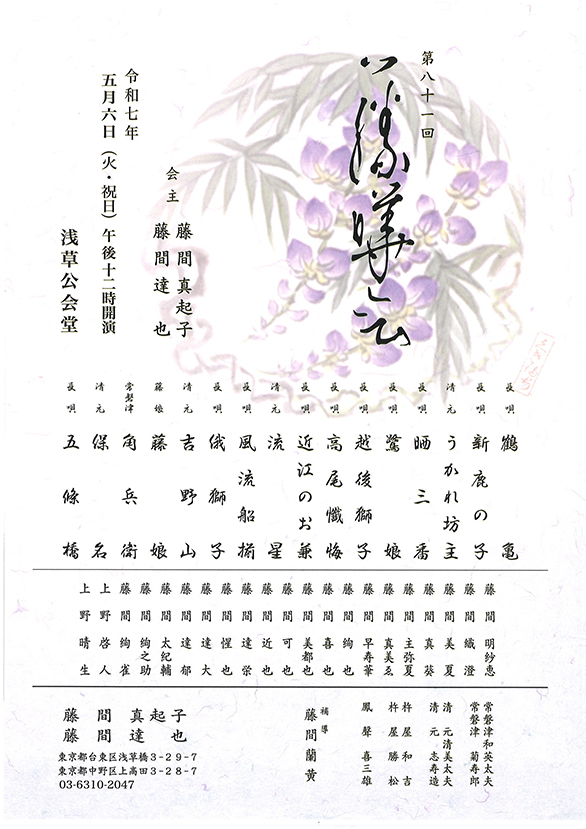 第八十一回
藤華会
令和七年
五月六日(火・祝日)午後十二時開演
浅草公会堂
会主
藤間真起子
藤間達也
長唄 鶴亀
長唄 新鹿の子
清元 うかれ坊主
長唄 晒三番
長唄 鷺娘
長唄 越後獅子
長唄 高尾懺悔
長唄 近江のお兼
清元 流星
長唄 風流船揃
長唄 俄獅子
清元 吉野山
藤娘 藤娘
常磐津 角兵衛
清元 保名
長唄 五條橋
藤間明紗恵
藤間織澄
藤間美夏
藤間真葵
藤間主弥夏
藤間真美ゑ
藤間早寿華
藤間絢也
藤間喜也
藤間美都也
藤間可也
藤間近也
藤間達栄
藤間惺也
藤間達大
藤間達郁
藤間太紀輔
藤間絢之助
藤間絢雀
上野啓人
上野晴生
常磐津和英太夫
常磐津菊寿郎
清元清美太夫
清元志寿造
杵屋和吉
杵屋勝松
鳳聲喜三雄
補導
藤間蘭黄
藤間真起子
藤間達也
東京都台東区浅草橋3-29-7
東京都中野区上高田3-28-7
03-6310-2047